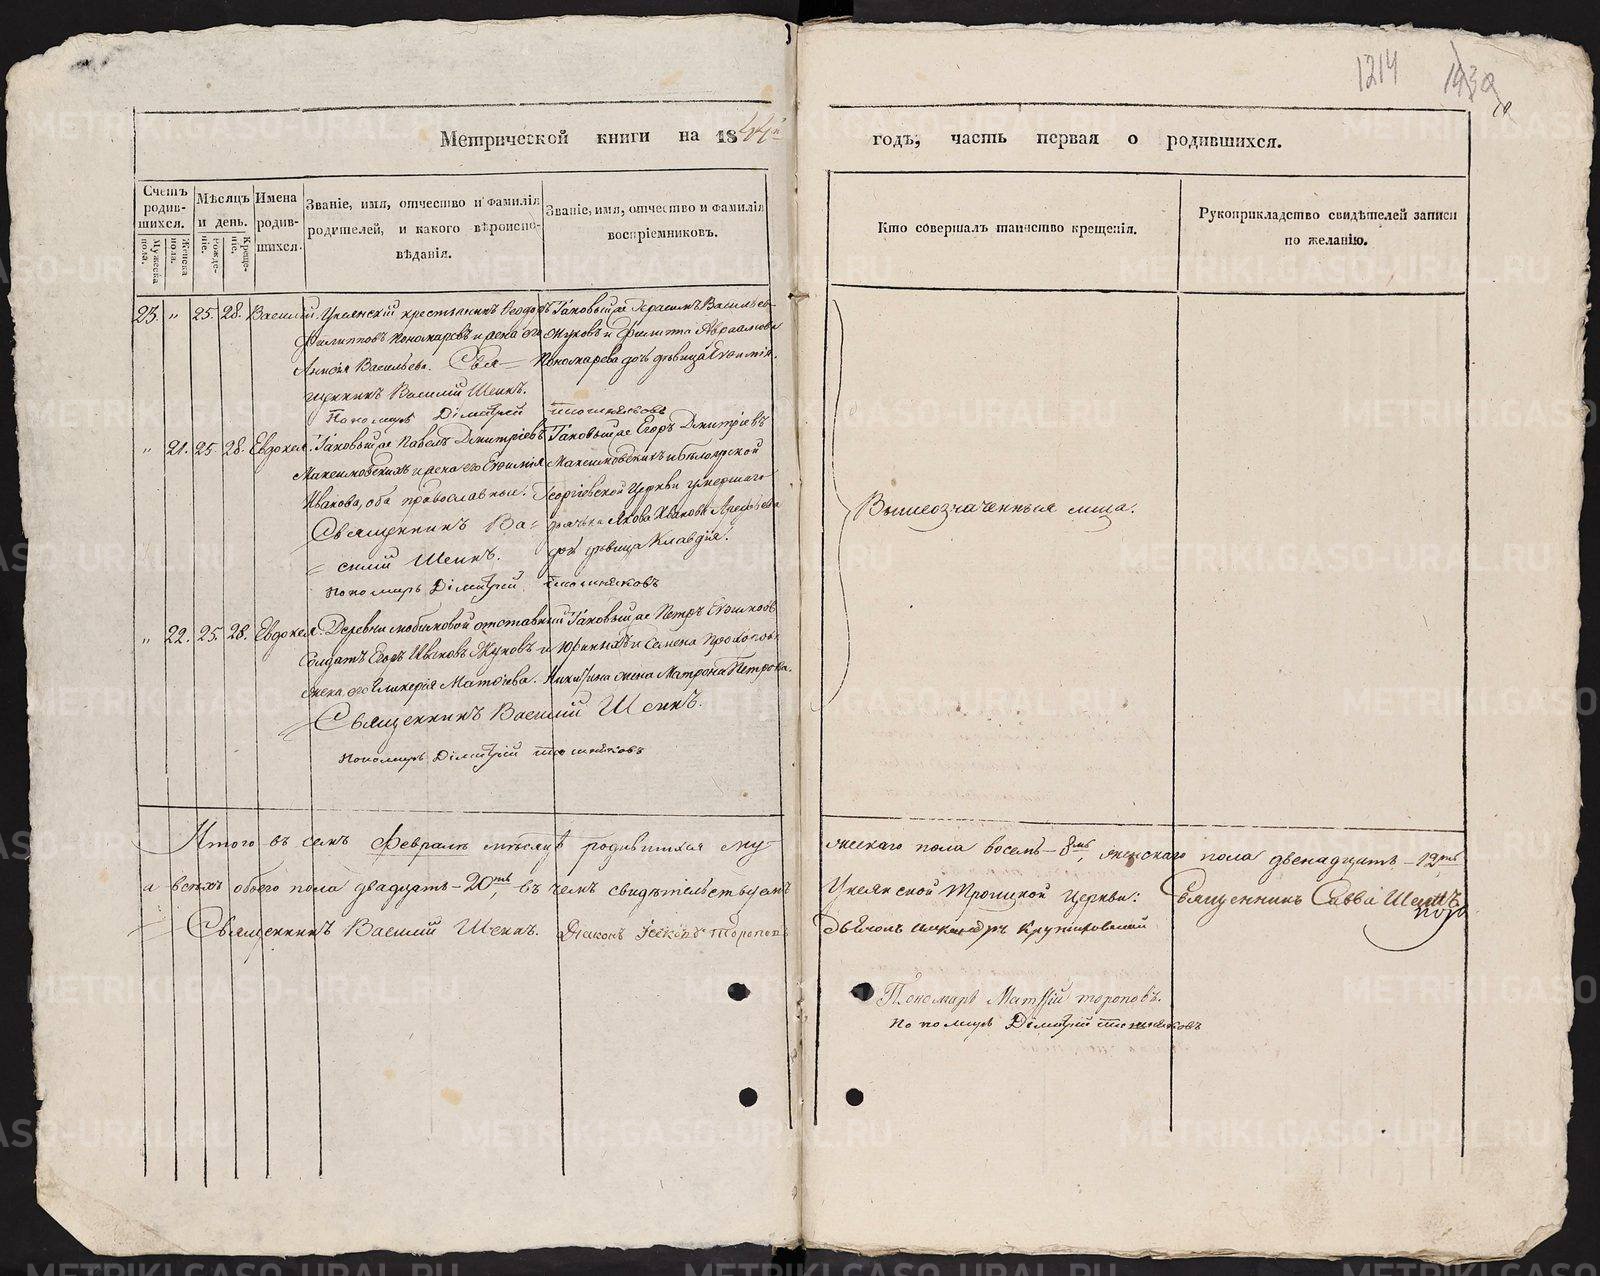 1214
Метрической книги на 1844й
годъ, часть первая о родившихся.
Счетъ родив-шихся.
Мужеска пола.
Женска пола.
Мѣсяцъ и день.
рожде-ніе.
Креще-ніе.
Имена родив-шихся.
Званіе, имя, отчество и фамилія родителей, и какого вѣроиспо-вѣданія.
Званіе, имя, отчество и фамилія воспріемниковъ.
Кто совершалъ таинство крещенія.
Рукоприкладство свидѣтелей записи по желанію.
23. " 25. 28. Василій. Уксянскій крестьянинъ Ѳеодоръ
Филипповъ Пономаревъ и жена его
Васильева. Свя=
щенникъ Василій Шеинъ.
Пономарь Дімитрій
Таковый же Герасимъ Васильевъ
Жуковъ и Филиппа
Пономарева дочь дѣвица Евѳимія.
" 21. 25. 28. Евдокея. Таковый же Павелъ Дмитріевъ
Максимовскихъ и жена его Евѳимія
Иванова, оба православные.
Священникъ Ва=
= силій Шеинъ.
Пономарь Дімитрій
Таковый же Егоръ Дмитріевъ
Максимовскихъ и Бѣлоярской
Георгіевской Церкви умершаго
дьячка Якова Иванова
дочь дѣвица Клавдія.
" 22. 25. 28. Евдокея. Деревни Любимовой отставный
Солдатъ Егоръ Ивановъ Жуковъ и
жена его Гликерія Матѳіева.
Священникъ Василій Шеинъ.
Пономарь Дімитрій
Таковый же Петръ Евѳимовъ
и Семена Прокопьева
Никитина жена Матрона Петрова.
Вышеозначенныя лица.
Итого въ семъ Февралѣ мѣсяцѣ родившихся му-
жескаго пола восемь - 8мь, женскаго пола двенадцать - 12ть
а всѣхъ обоего пола двадцать - 20ть, въ чемъ свидѣтельствуемъ
Уксянской Троицкой Церкви: Священникъ Савва Шеинъ
Священникъ Василій Шеинъ. Діаконъ Торопов
Дьячокъ Александръ
Пономарь Матѳій Тороповъ.
Пономарь Дімитрій
METRIKI.GASO-URAL.RU